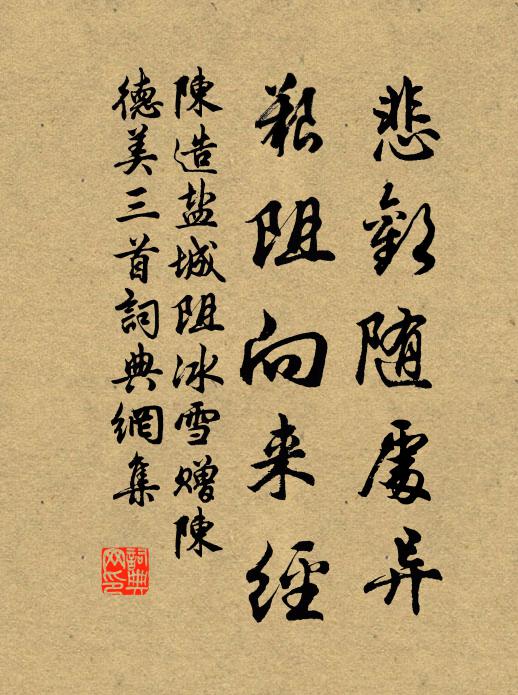 悲歡随處异
艱阻向来經
陳造盐城阻冰雪赠陳
德美三首詞典網集
詞典网印